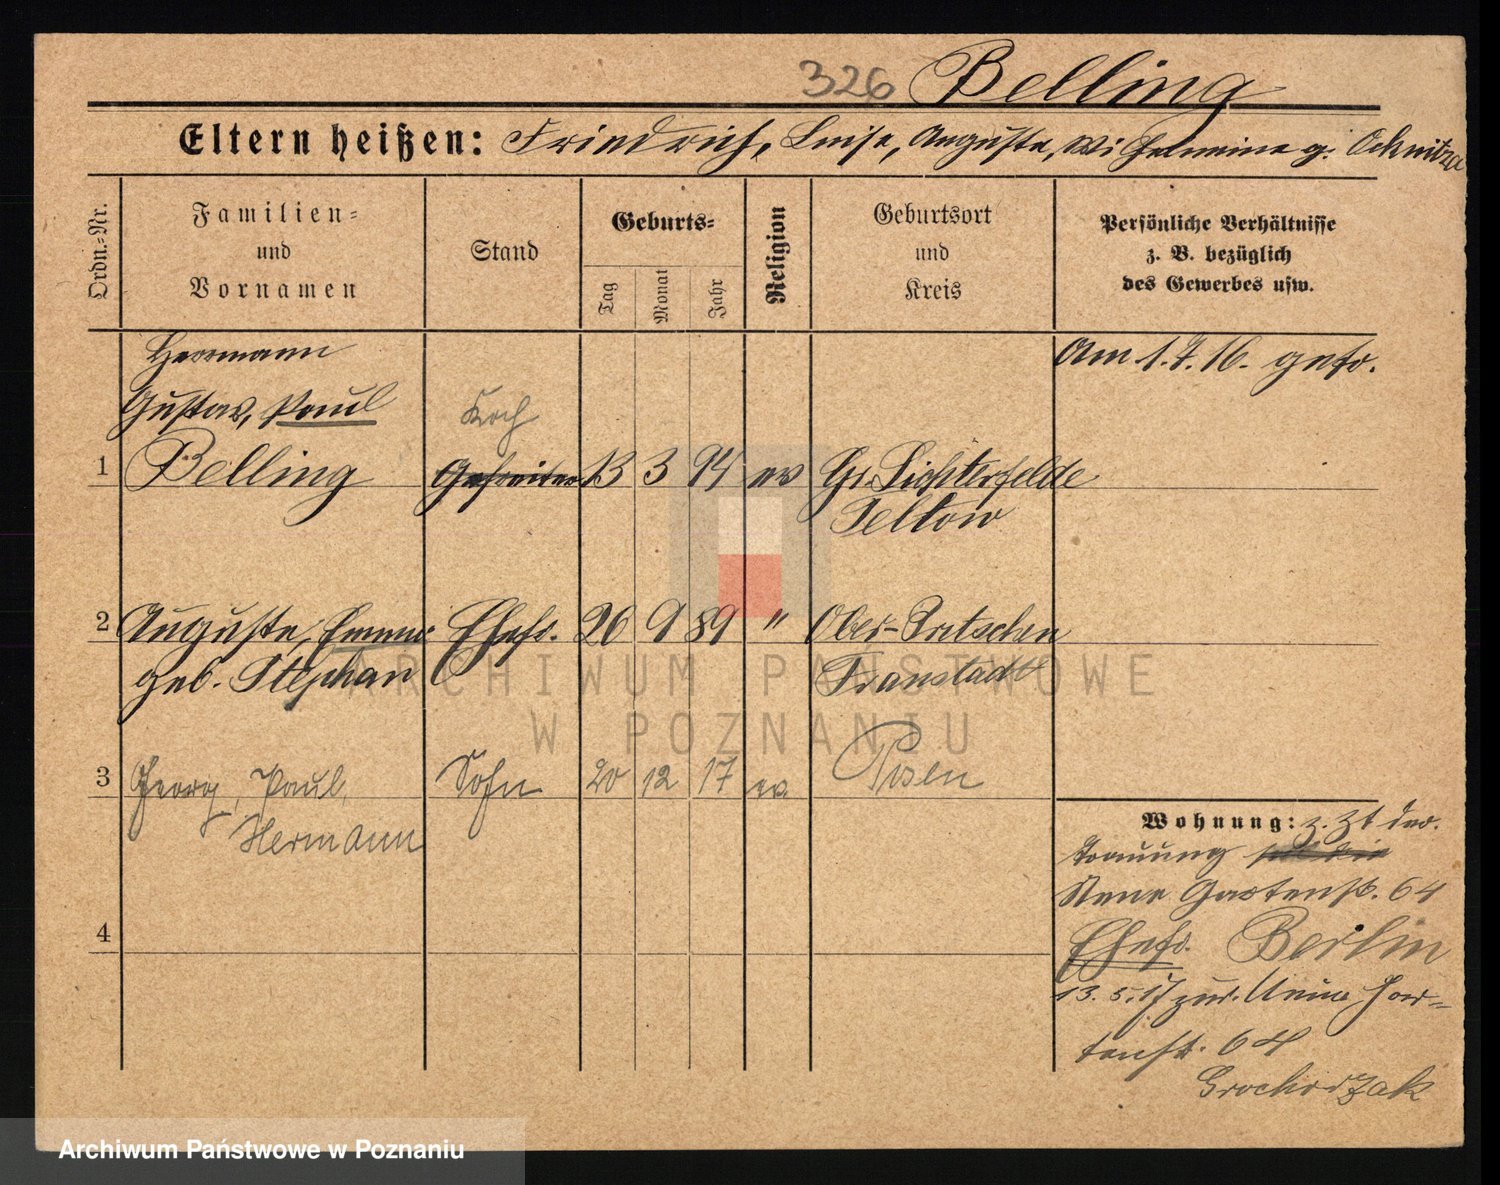 326 Belling
Eltern heißen: Friedrich, Luise, Auguste, Wilhelmine g. Ochnitza
Ordn.=Nr.
Familien=
und
Vornamen
Stand
Geburts=
Tag
Monat
Jahr
Religion
Geburtsort
und
Kreis
Persönliche Verhältnisse
z. B. bezüglich
des Gewerbes usw.
Herrmann
Gustav, Paul
Koch
1 Belling Gefreiter 13 3 94 ev Gr. Lichterfelde
Teltow
Am 1.7.16. getr.
2 Auguste, Emma Ehefr. 26 9 89 " Ober-Pritschen
geb. Stephan Fraustadt
3 Georg, Paul, Sohn 20 12 17 ev. Posen
Hermann
4
Wohnung: z. Zt der
Trauung
Neue Gartenstr. 64
Ehefr. Berlin
13. 5. 17 zur. Neue Gar=
tenstr. 64
Grochodzak
ARCHIWUM PAŃSTWOWE
W POZNANIU
Archiwum Państwowe w Poznaniu